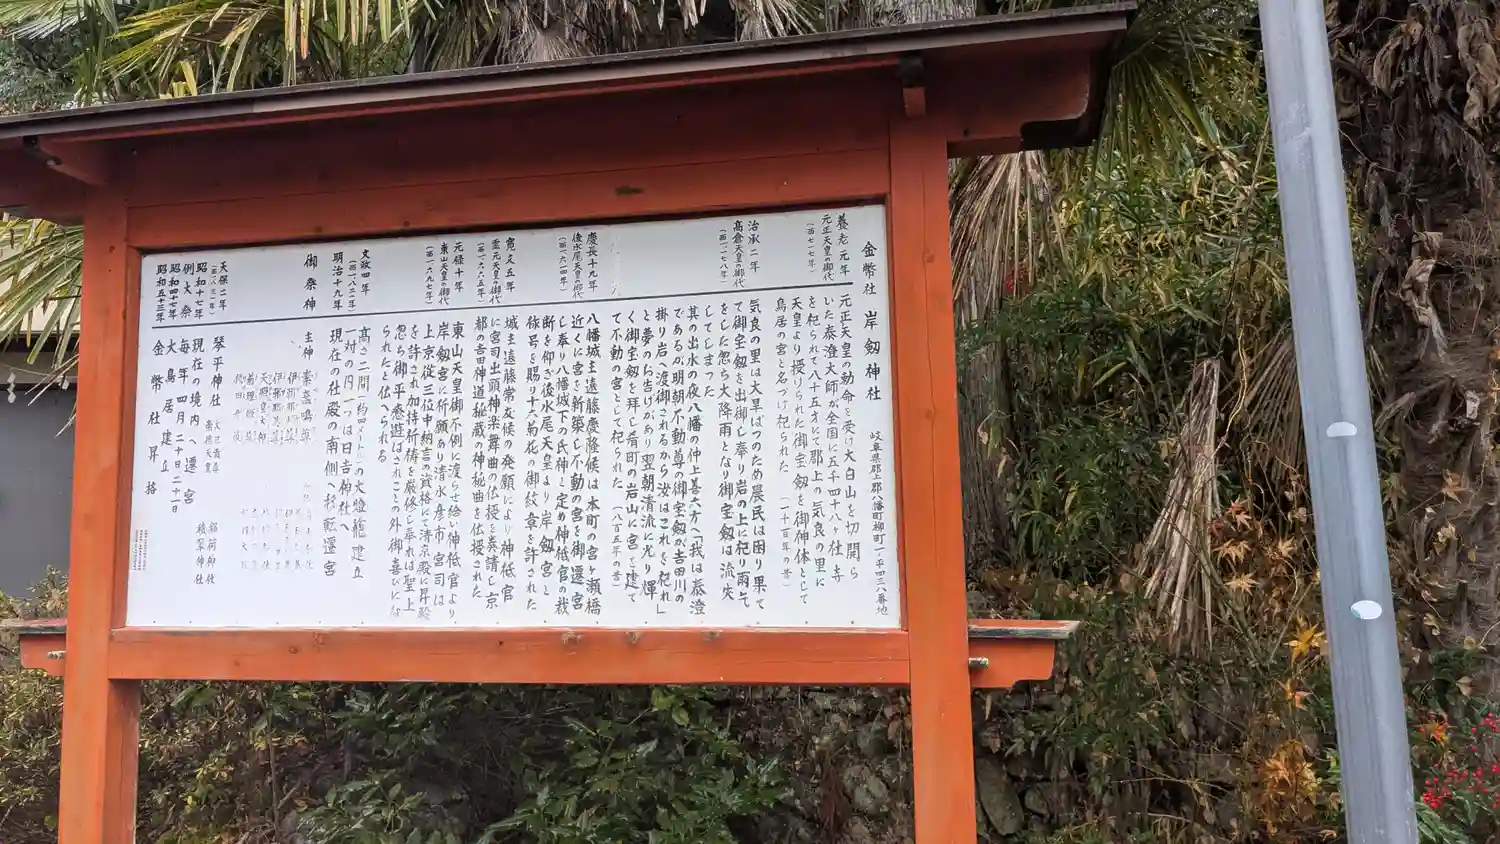 金幣社 岸劔神社
岐阜県郡上郡八幡町柳町一ノ平四三八番地
養老元年
元正天皇の御代
(西七一七年)
元正天皇の勅命を受け大白山を切開ら
いた泰澄大師が全国に五千四十八ヶ社寺
を祀られて八十五才にて郡上の気良の里に
天皇より授けられた御宝劔を御神体として
鳥居の宮と名づけ祀られた (二十百年の昔)
治承二年
高倉天皇の御代
(西一一七八年)
気良の里は大旱ばつのため農民は困り果て
て御宝劔を出御し奉り岩の上に祀り雨乞
をした忽ち大降雨となり御宝劔は流失
してしまった
其の出水の夜八幡の仲上善六方へ「我は泰澄
であるが明朝不動尊の御宝劔が吉田川の
掛り岩へ渡御されるから汝はこれを祀れ」
と夢のお告げがあり翌朝清流に光り輝
く御宝劔を拜し肴町の岩山に宮を建て
て不動の宮として祀られた (八百五年の昔)
慶長十九年
後水尾天皇の御代
(西一六一四年)
八幡城主遠藤慶隆候は本町の宮ヶ瀬橋
近くに宮を新築し不動の宮を御遷宮
し奉り八幡城下の氏神と定め神祇官の裁
断を仰ぎ後水尾天皇より岸劔宮と
称号を賜り十六菊花の御紋章を許された
寛文五年
霊元天皇の御代
(西一六六五年)
城主遠藤常友候の発願により神祇官
に宮司出頭神楽舞曲の伝授を奏請し京
都の吉田神道秘蔵の神秘曲を伝授された
元禄十年
東山天皇の御代
(西一六九七年)
東山天皇御不例に渡らせ給い神祇官より
岸劔宮に祈願あり清水彦市宮司は
上京従三位中納言の資格にて清京殿に昇殿
を許され加持祈祷を厳修し奉れば聖上
忽ち御平癒遊ばされことの外御喜びにな
られたと伝へられる
文政四年
(西一八二一年)
高さ二間(約四メートル)の大燈籠建立
一対の内一つは日吉神社へ
明治十九年
現在の社殿の南側へ移転遷宮
御祭神
主神 素盞鳴尊
天保二年
(西一八三一年)
琴平神社 大己貴尊
崇徳天皇
稲荷神社
秋葉神社
昭和十七年
現在の境内へ遷宮
例大祭
毎年四月二十日二十一日
昭和四十七年
大鳥居建立
昭和五十三年
金幣社昇格